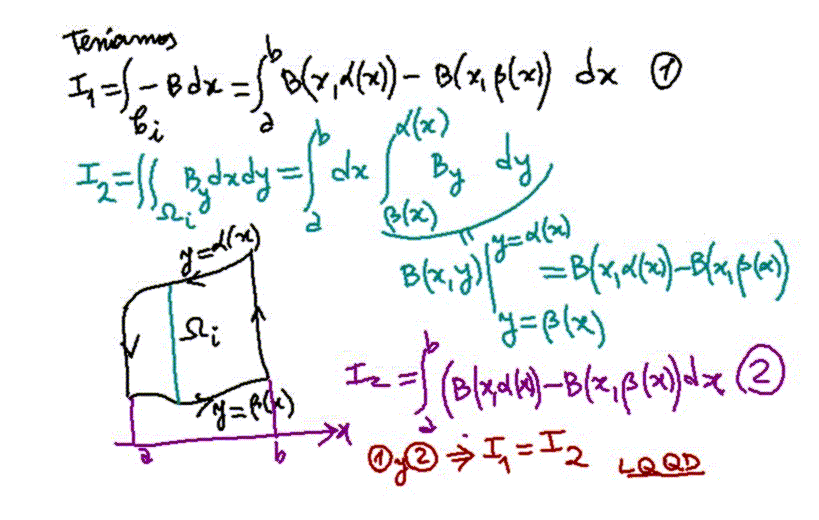 Teníamos
I₁ = ∫_{𝒞i} − B dx = ∫_a^b B(x, α(x)) − B(x, β(x)) dx ①
I₂ = ∬_{Ωi} B_y dx dy = ∫_a^b dx ∫_{β(x)}^{α(x)} B_y dy
B(x, y) |_{y = β(x)}^{y = α(x)} = B(x, α(x)) − B(x, β(x))
y = α(x)
Ωi
y = β(x)
a b x
I₂ = ∫_a^b (B(x, α(x)) − B(x, β(x)) dx ②
① y ② ⇒ I₁ = I₂ LQQD